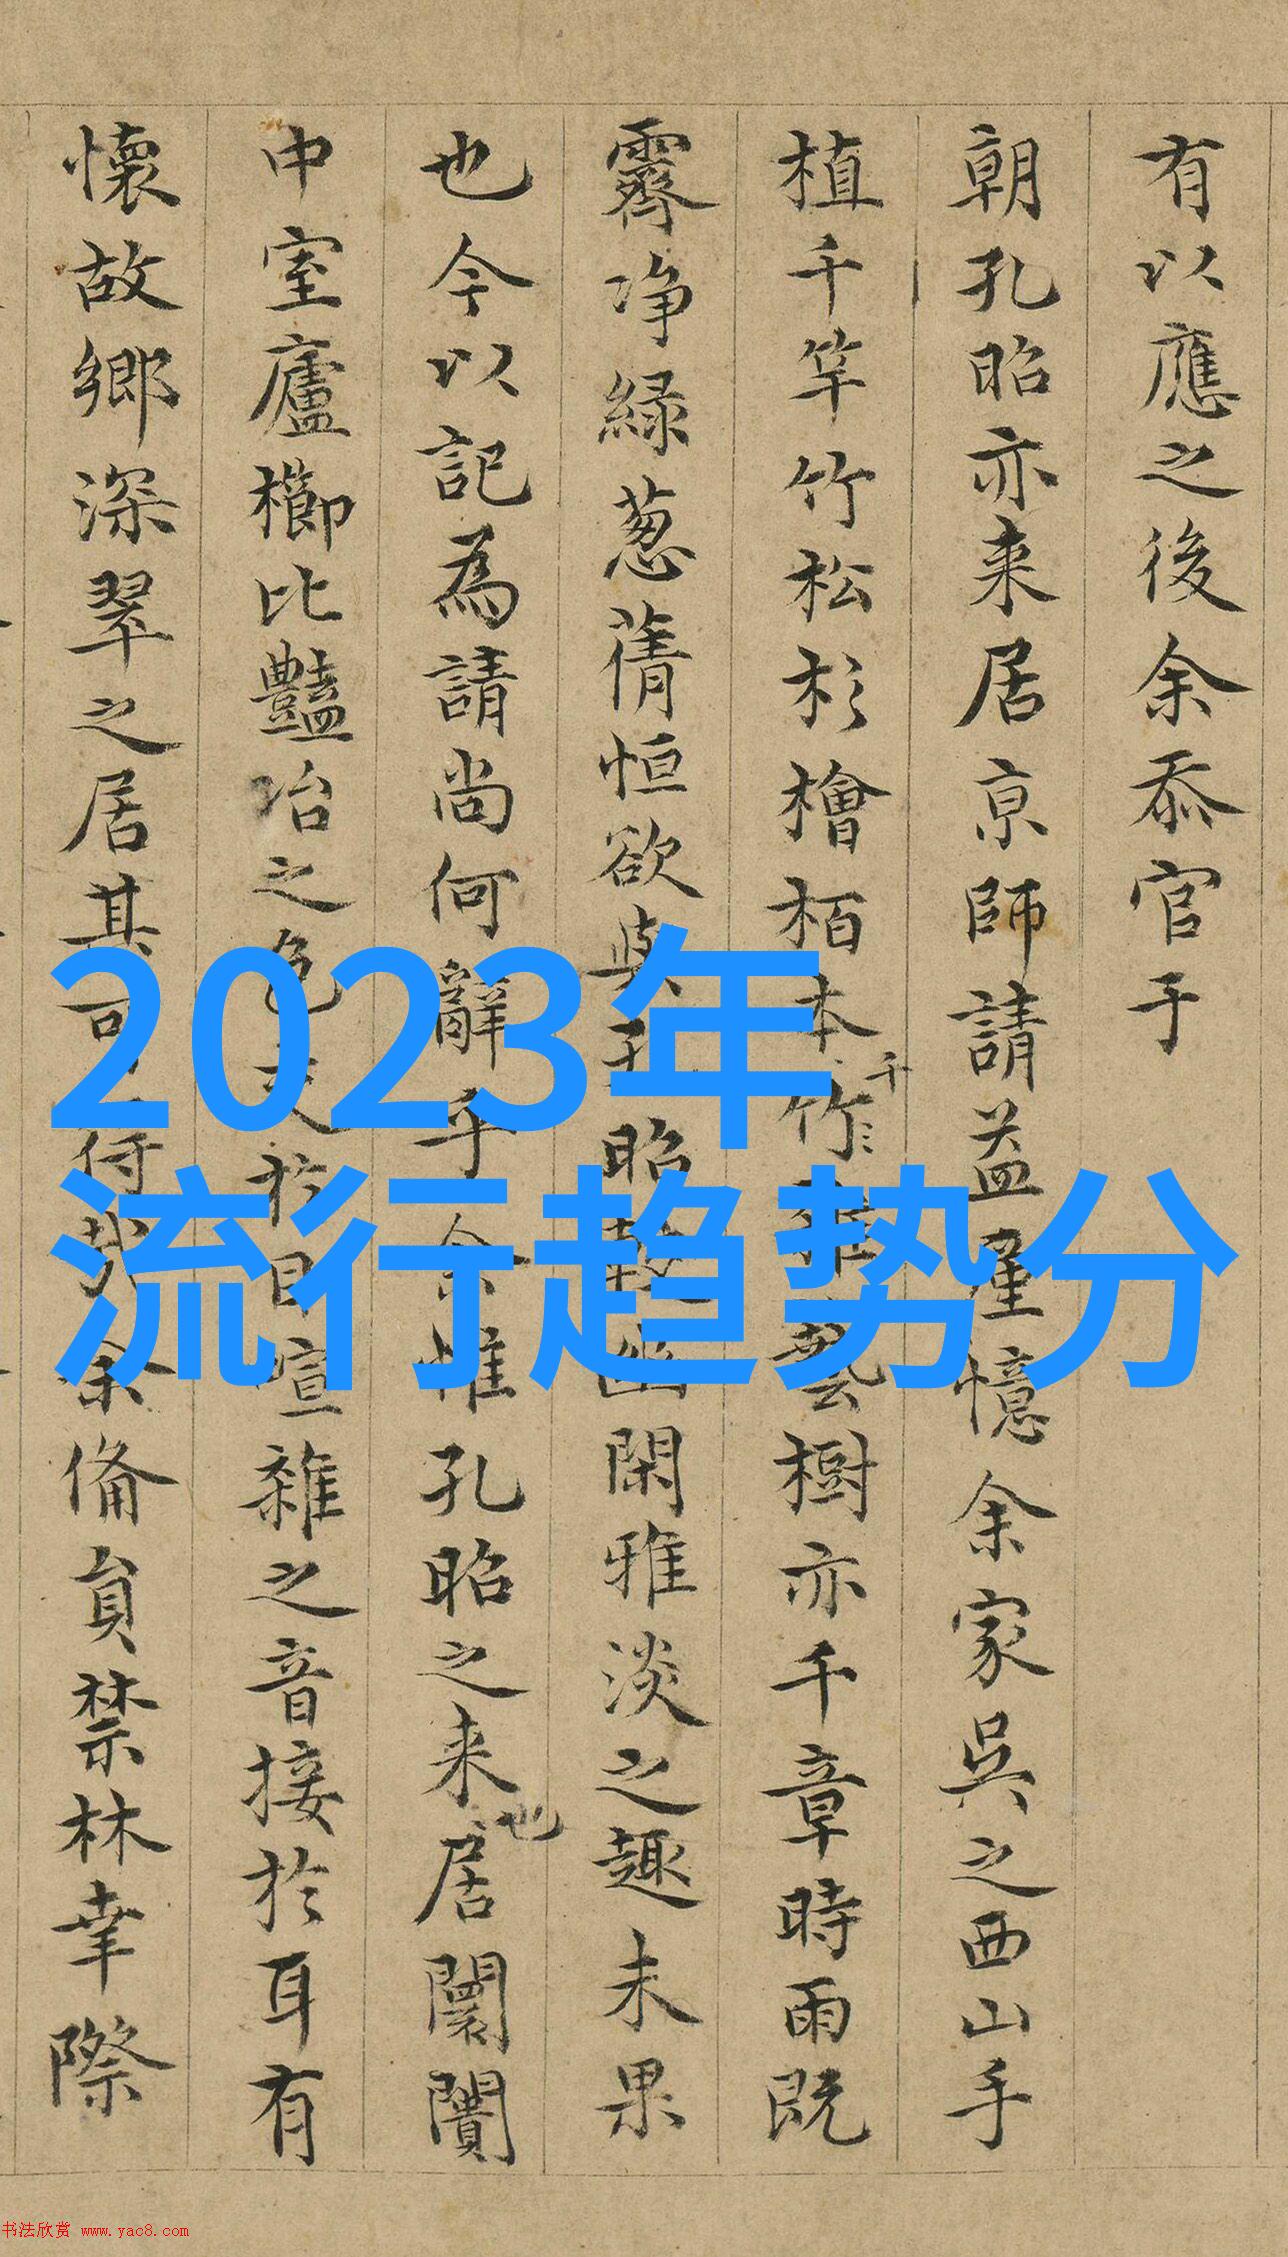 有以應之後余忝官于
朝孔昭亦来居京師請益屢憶余家吳之西山手
植千竿竹松杉檜栢本竹千樹亦千章時雨既
霽净緑葱蒨恒欲與孔昭幽閑雅淡之趣未果
也今以記為請尚何辭乎余惟孔昭之来居闤闠也
中室廬櫛比豔冶之色交於目喧雜之音接於耳有
懷故鄉深翠之居其可得哉余備員禁林幸際
2023年
流行趋势分
书法欣赏 www.yac8.com